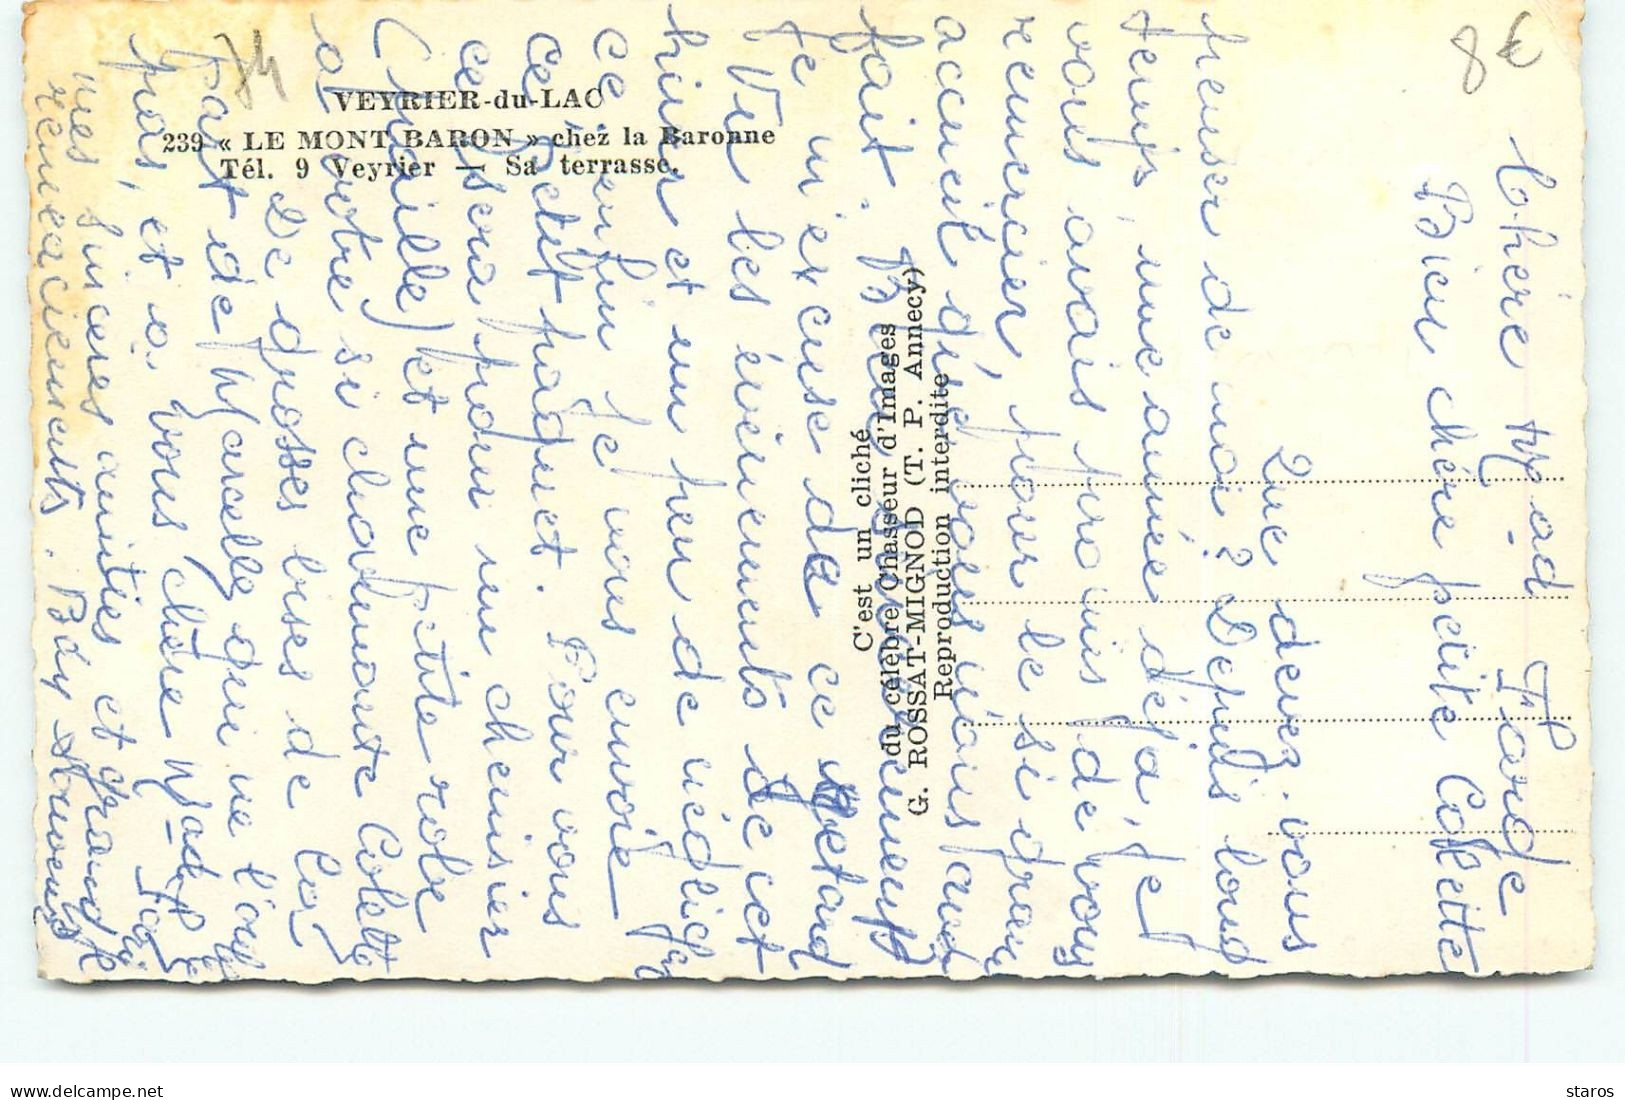 8€
74
VEYRIER-du-LAC
239 « LE MONT BARON » chez la Baronne
Tél. 9 Veyrier — Sa terrasse.
C'est un cliché
du célèbre Chasseur d'Images
G. ROSSAT-MIGNOD (T. P. Annecy)
Reproduction interdite
Chère Mad
Bien chère petite Colette
Que devez-vous
penser de moi ? Depuis tout
temps, une année déjà, je
vous avais promis de vous
remercier, pour le si gran
accueil
fait.
je m'excuse de ce retard
Vu les événements de cet
hiver et un peu de
ce enfin je vous envoie
ce petit paquet. Pour vous
ce sera pour un chemisier
(taille) et une petite robe
à votre si charmante Colette
De grosses bises de
part de Marcelle qui ne l'oubl
pas, et à vous chère Mad
mes sincères amitiés et grands
remerciements.
staros